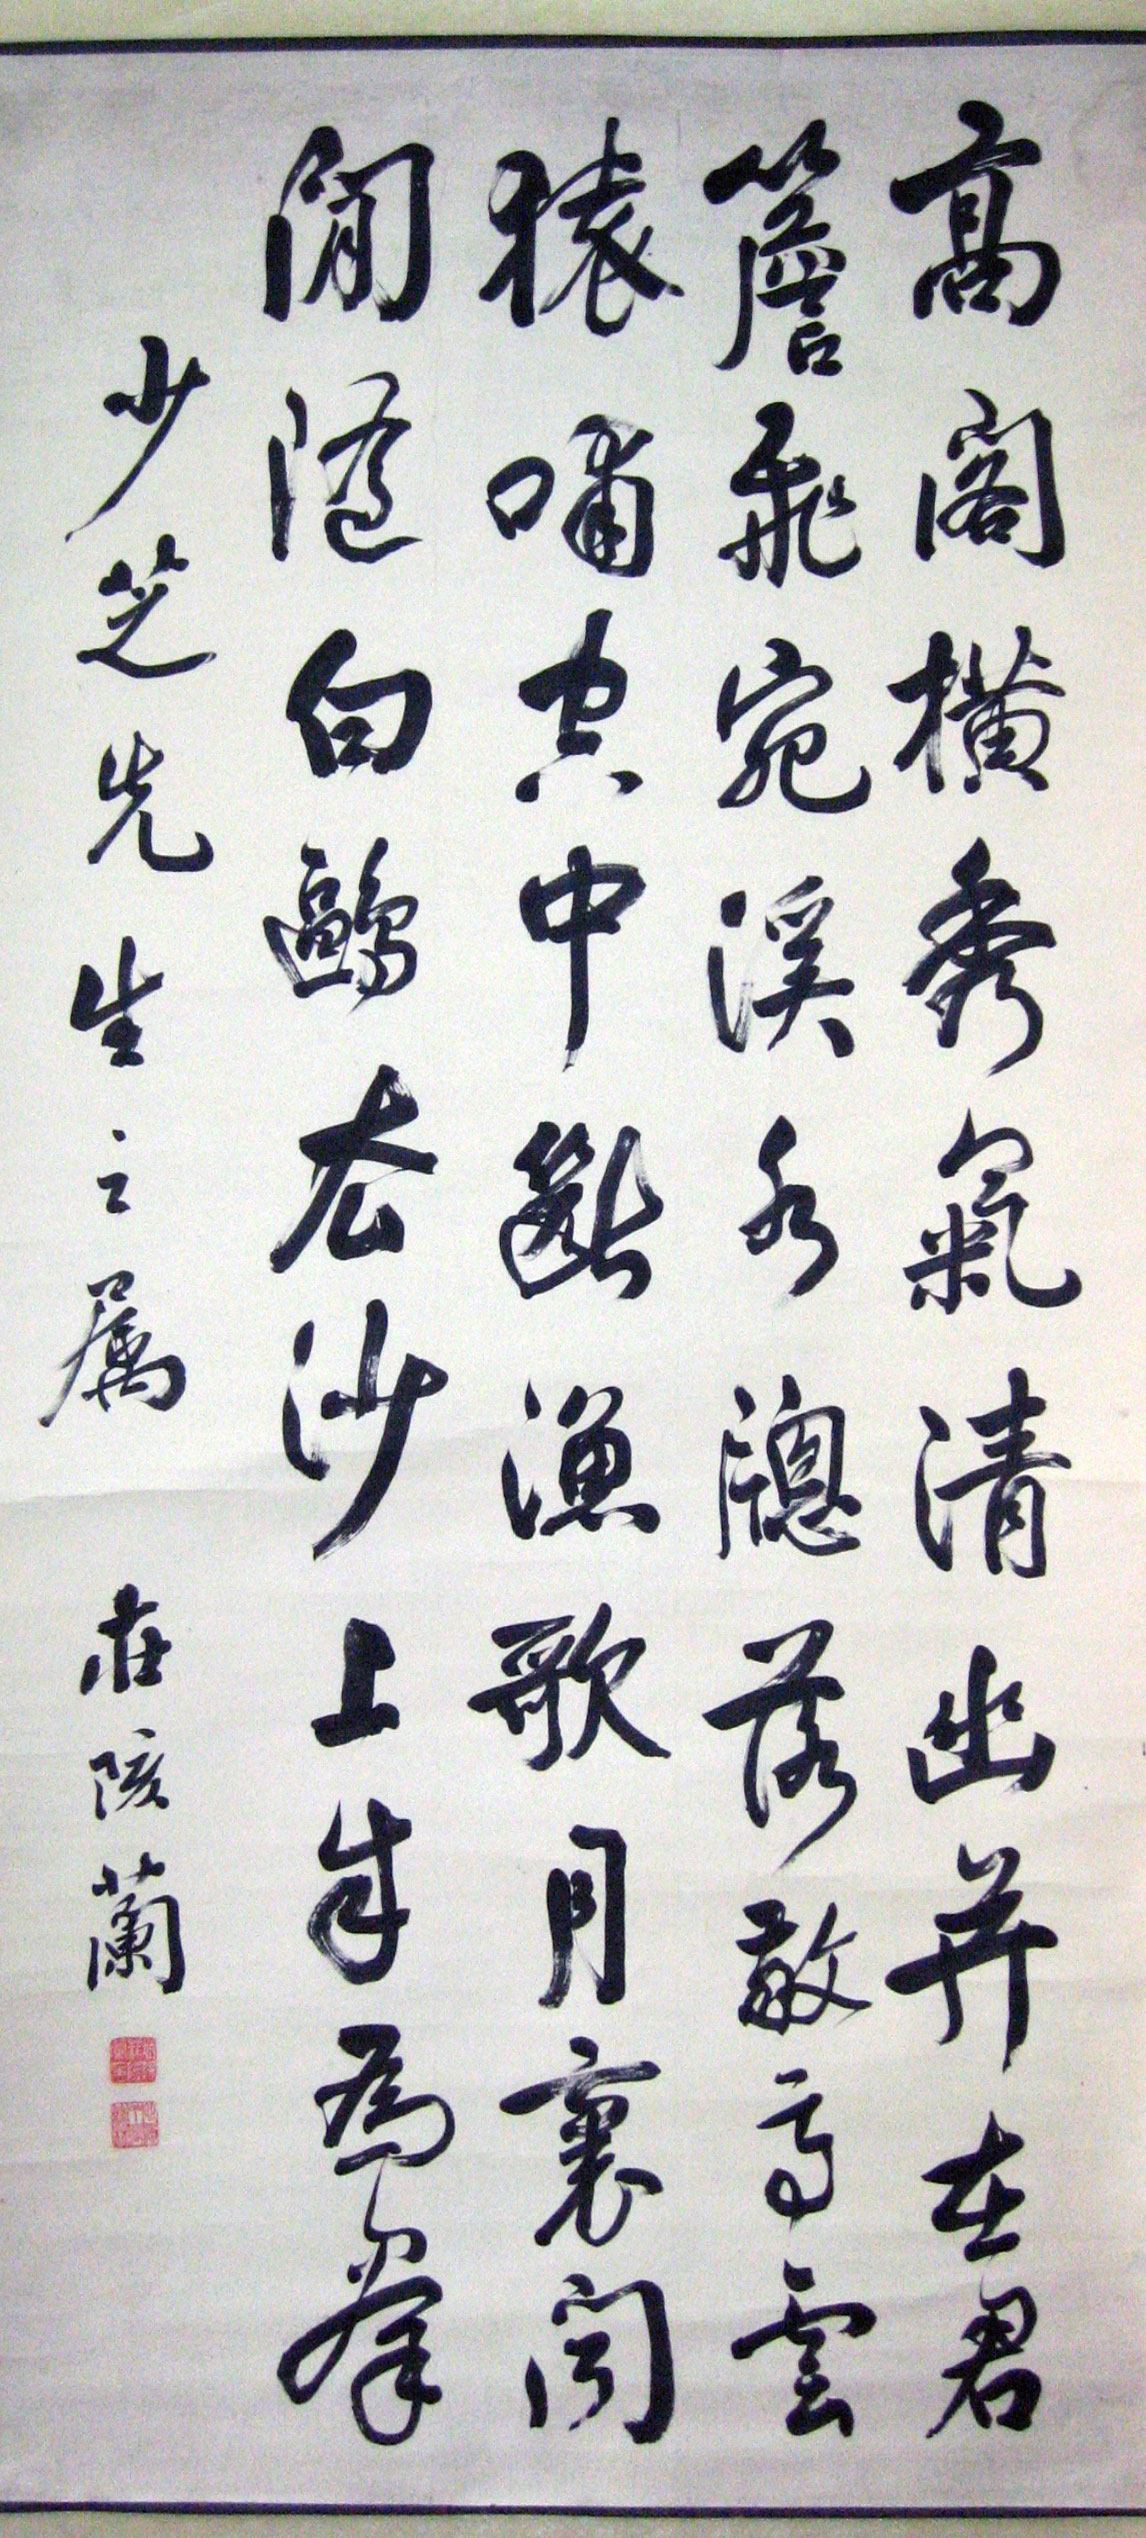 高閣橫秀氣清幽并在君
簷飛宛溪水牕落敬亭雲
猿嘯空中斷漁歌月裏聞
閒隨白鷗去沙上自為羣
少芝先生之属 莊陔蘭